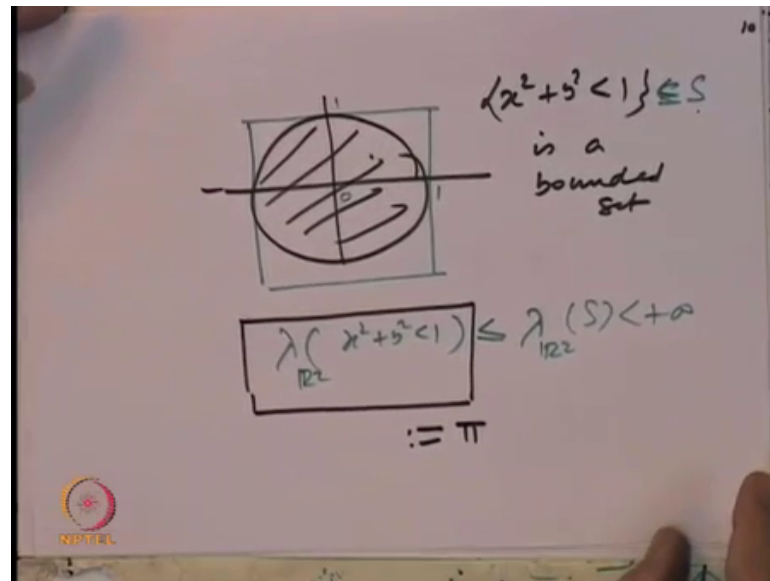 10
1
{x² + y² < 1} ⊆ S
is a
bounded
set
0
1
λ_ℝ² ( x² + y² < 1 ) ≤ λ_ℝ² (S) < +∞
:= π
NPTEL